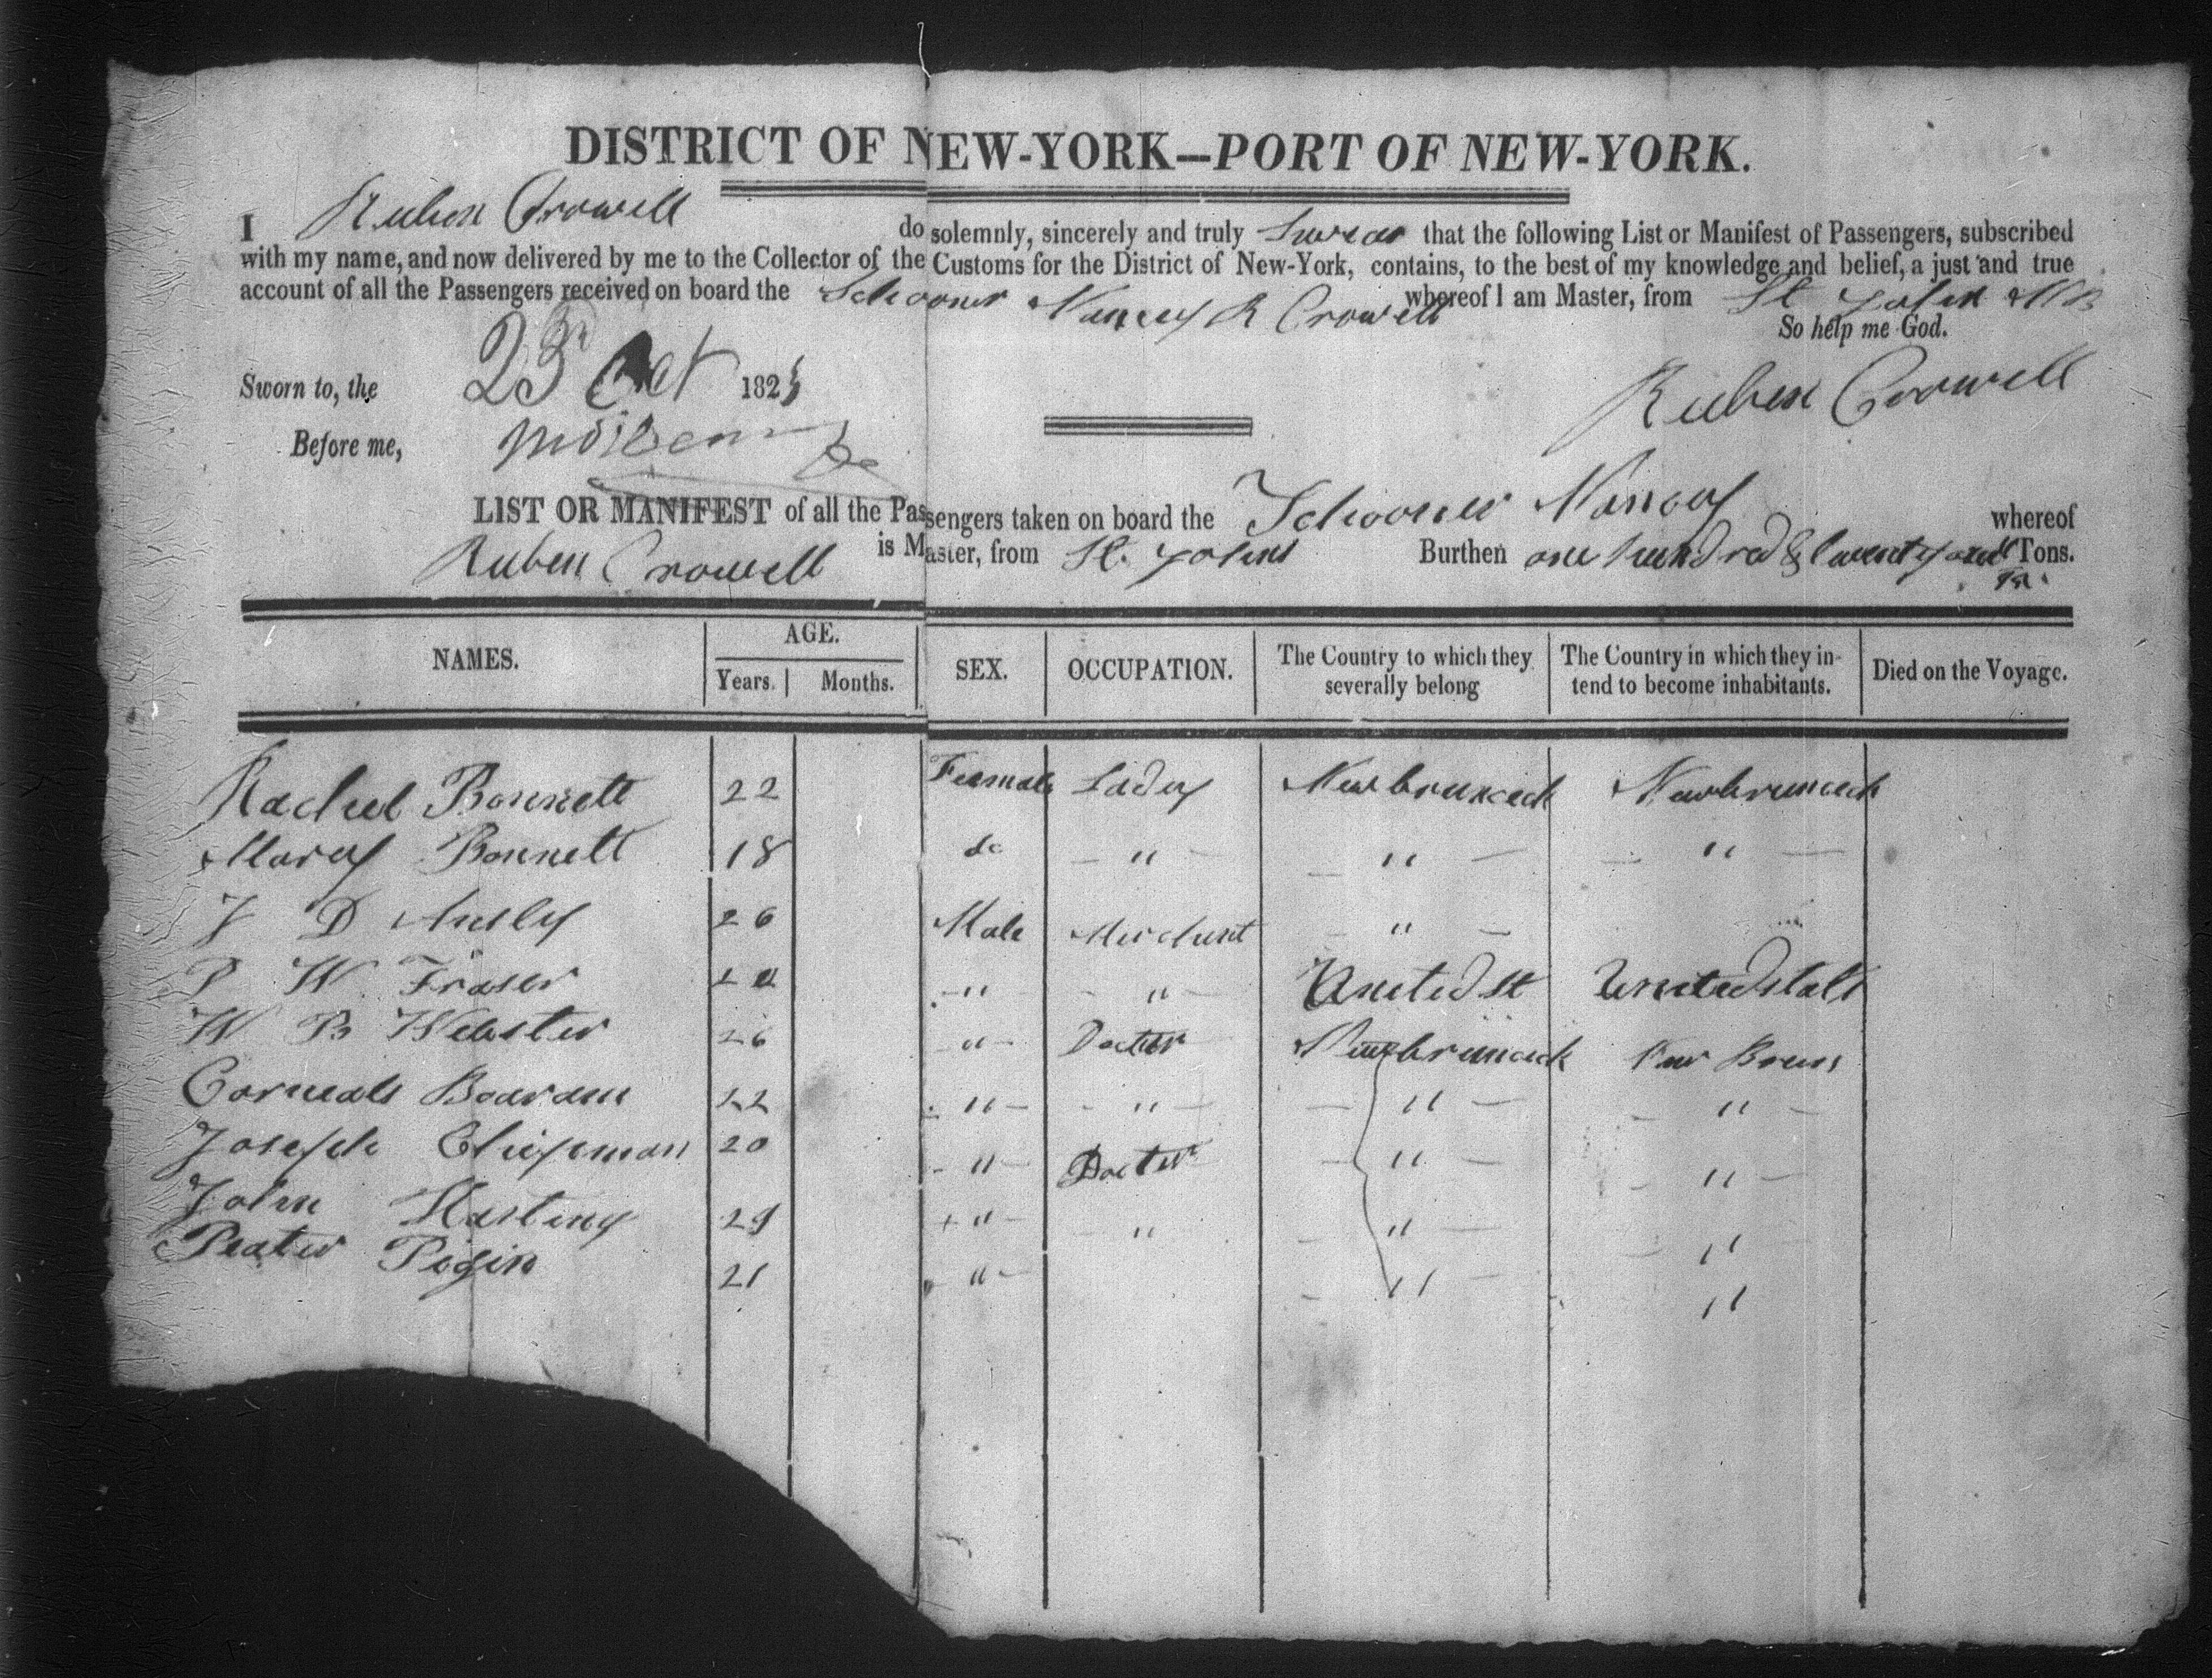 DISTRICT OF NEW-YORK—PORT OF NEW-YORK.
I Ruben Crowell do solemnly, sincerely and truly Swear that the following List or Manifest of Passengers, subscribed
with my name, and now delivered by me to the Collector of the Customs for the District of New-York, contains, to the best of my knowledge and belief, a just and true
account of all the Passengers received on board the Schooner Nancy R Crowell whereof I am Master, from St John NB
So help me God.
Sworn to, the 23 Oct 182
Ruben Crowell
Before me,
LIST OR MANIFEST of all the Passengers taken on board the Schooner Nancy whereof
Ruben Crowell is Master, from St. Johns Burthen one hundred & twenty Tons.
NAMES. AGE. SEX. OCCUPATION. The Country to which they severally belong The Country in which they intend to become inhabitants. Died on the Voyage.
Years. Months.
Rachel Bonnett 22 Female Lady Newbrunceck Newbrunceck
Mary Bonnett 18 do — " — — " — — " —
J D Ansly 26 Male Merchant — " —
P W Fraser 2 — " — " — United St United Stats
W B Webster 26 — " — Docter Newbrunceck New Bruns
Corneals 22 — " — — " — — " — — " —
Joseph Chipman 20 - " — Docter — " — — " —
John Hasting 29 + " — " — " — — " —
Peater Pegin 21 - " — — " — "